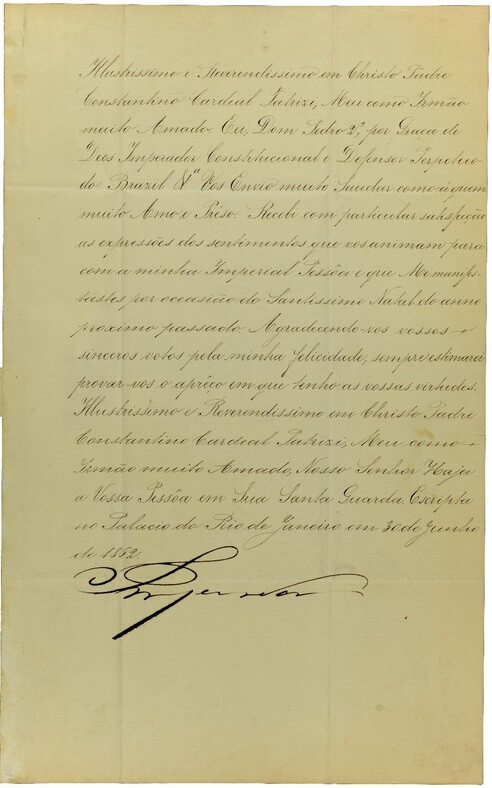 Illustrissimo e Reverendissimo em Christo Padre
Constantino Cardeal Patrizi, Meu como Irmão
muito Amado. Eu, Dom Pedro 2º, por Graça de
Deos Imperador Constitucional e Defensor Perpetuo
do Brazil &ª Vos Envio muito Saudar como á quem
muito Amo e Préso. Recebi com particular satisfação
as expressões dos sentimentos que vos animam para
com a minha Imperial Pessôa e que Me manifes-
tastes por occasião do Santissimo Natal do anno
proximo passado. Agradecendo-vos vossos
sinceros votos pela minha felicidade, sempre estimarei
provar-vos o aprêço em que tenho as vossas virtudes.
Illustrissimo e Reverendissimo em Christo Padre
Constantino Cardeal Patrizi, Meu como
Irmão muito Amado, Nosso Senhor Haja
a Vossa Pessôa em Sua Santa Guarda. Escripta
no Palacio do Rio de Janeiro em 30 de Junho
de 1862.
Imperador